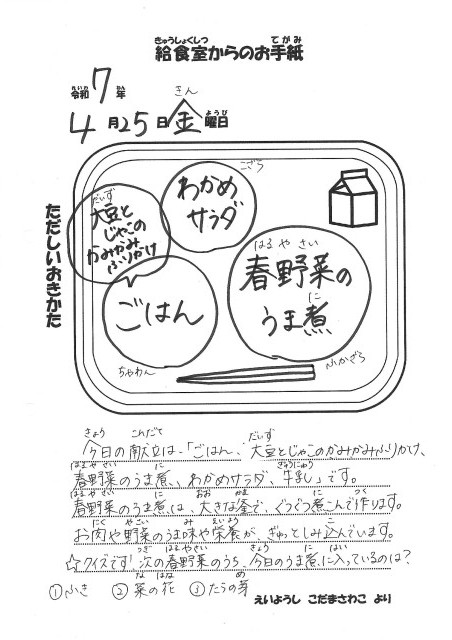 給食室からのお手紙
令和7年
4月25日金曜日
ただしいおきかた
大豆と
じゃこの
かみかみ
ふりかけ
わかめ
サラダ
こざら
ごはん
ちゃわん
春野菜の
うま煮
ふかざら
今日の献立は、「ごはん、大豆とじゃこのかみかみふりかけ、
春野菜のうま煮、わかめサラダ、牛乳」です。
春野菜のうま煮は、大きな釜で、ぐつぐつ煮こんで作ります。
お肉や野菜のうま味や栄養が、ぎゅっとしみ込んでいます。
☆クイズです!次の春野菜のうち、今日のうま煮に入っているのは?
①ふき ②菜の花 ③たらの芽
えいようし こだまさわこ より